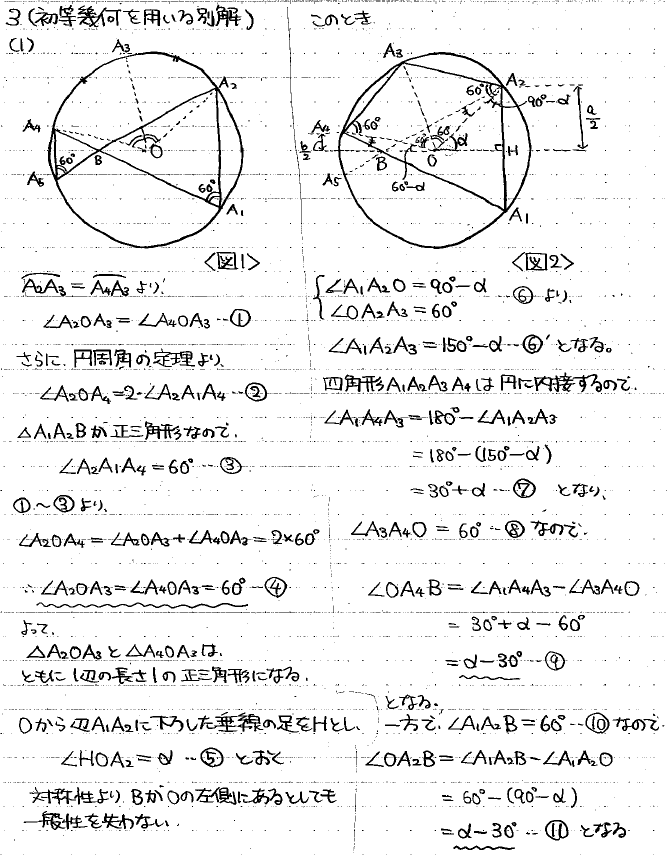 3 (初等幾何を用いる別解)
(1)
A3
A2
A4
B
O
60°
A5
60°
A1
<図1>
A2A3 = A4A3 より.
∠A2OA3 = ∠A4OA3 --- ①
さらに. 円周角の定理より.
∠A2OA4 = 2・∠A2A1A4 --- ②
△A1A2Bが正三角形なので.
∠A2A1A4 = 60° --- ③
①〜③より.
∠A2OA4 = ∠A2OA3 + ∠A4OA3 = 2×60°
∴ ∠A2OA3 = ∠A4OA3 = 60° --- ④
よって.
△A2OA3と△A4OA3は.
ともに1辺の長さ1の正三角形になる.
Oから辺A1A2に下ろした垂線の足をHとし.
∠HOA2 = α --- ⑤ とおく
対称性より BがOの左側にあるとしても
一般性を失わない.
このとき
A3
A2
60°
90°-α
a/2
A4
60°
b/2
60°
α
B
O
H
A5
60°-α
A1
<図2>
∠A1A2O = 90°-α
∠OA2A3 = 60°
--- ⑥ より.
∠A1A2A3 = 150°-α --- ⑥' となる。
四角形A1A2A3A4は円に内接するので.
∠A1A4A3 = 180°-∠A1A2A3
= 180°-(150°-α)
= 30°+α --- ⑦ となり、
∠A3A4O = 60° --- ⑧ なので.
∠OA4B = ∠A1A4A3-∠A3A4O
= 30°+α-60°
= α-30° --- ⑨
となる.
一方で. ∠A1A2B = 60° --- ⑩ なので.
∠OA2B = ∠A1A2B-∠A1A2O
= 60°-(90°-α)
= α-30° --- ⑪ となる